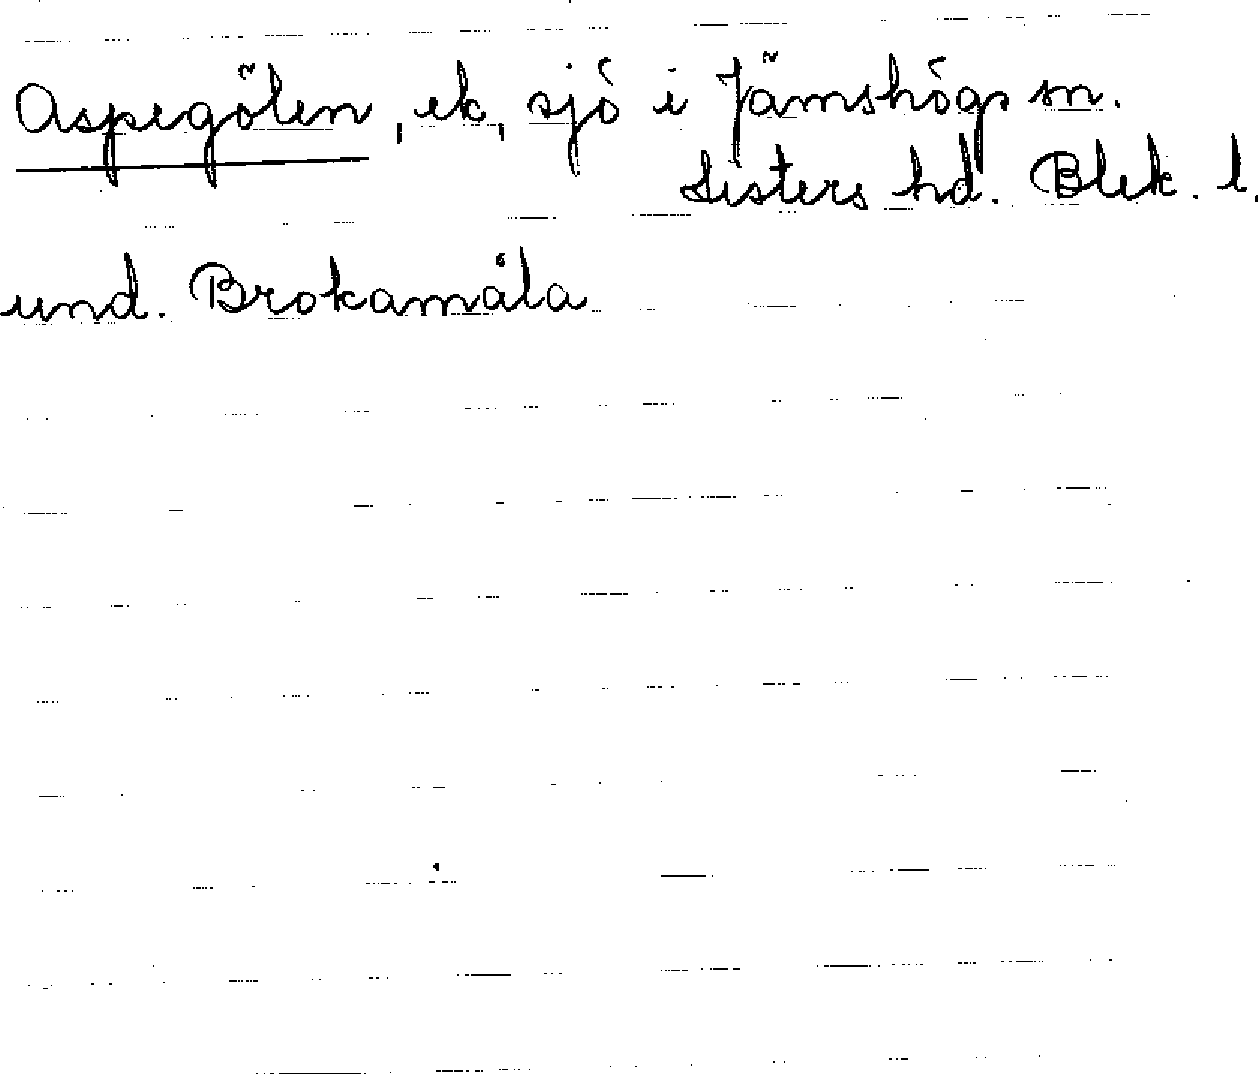 Aspegölen, ek, sjö i Jämshögs sn.
Listers hd. Blek. l.
und. Brokamåla